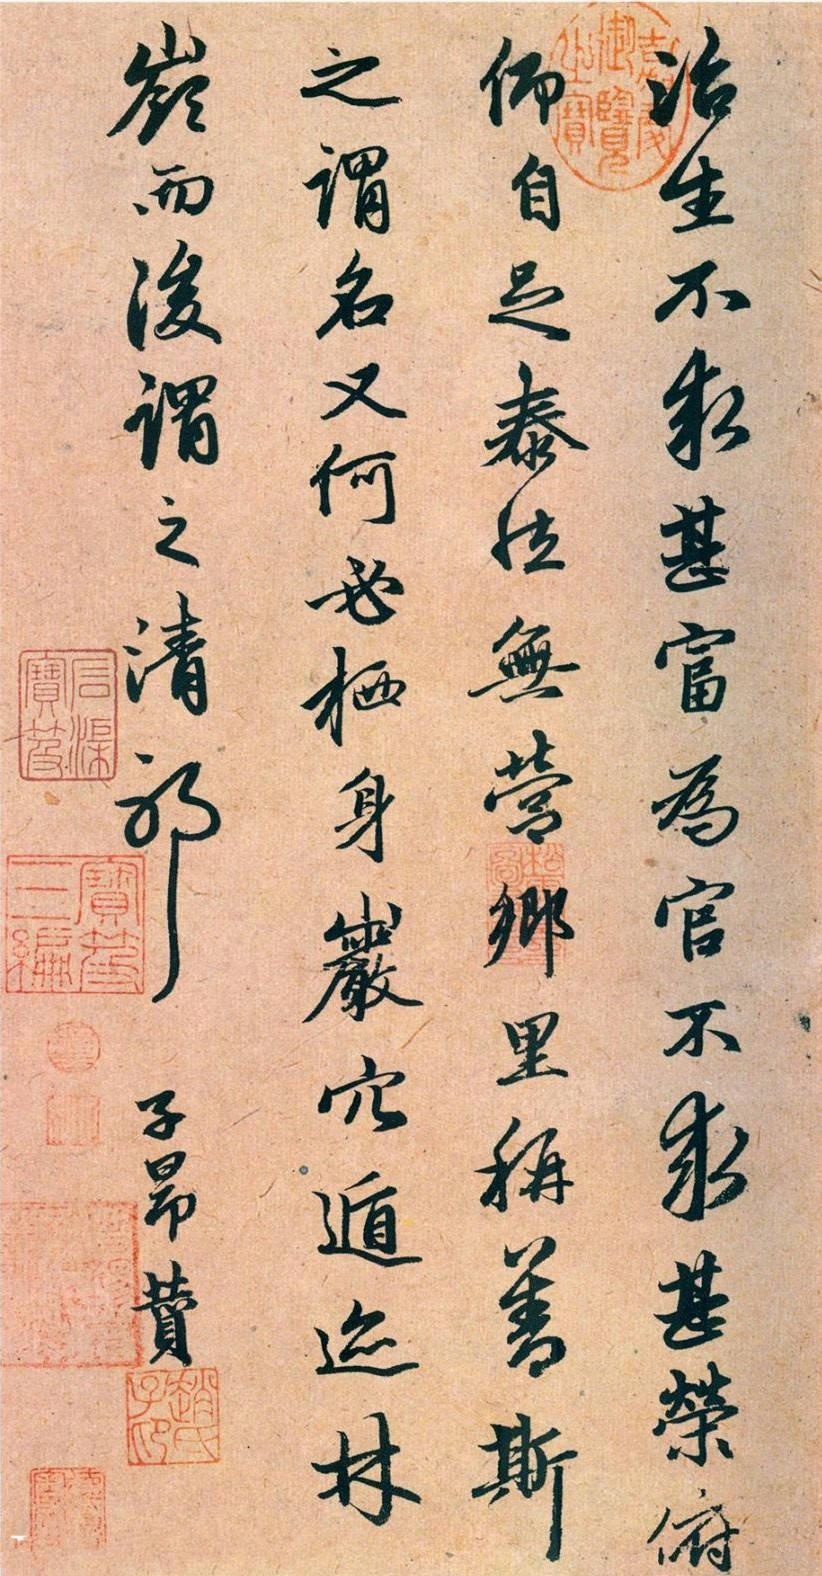 治生不求甚富為官不求甚榮俯
仰自足泰恬無營鄉里稱善斯
之謂名又何必栖身巖穴遁迹林
嶺而後謂之清邪
子昂贊
嘉慶御覽之寶
石渠寶笈
寶笈三編
趙氏子昂